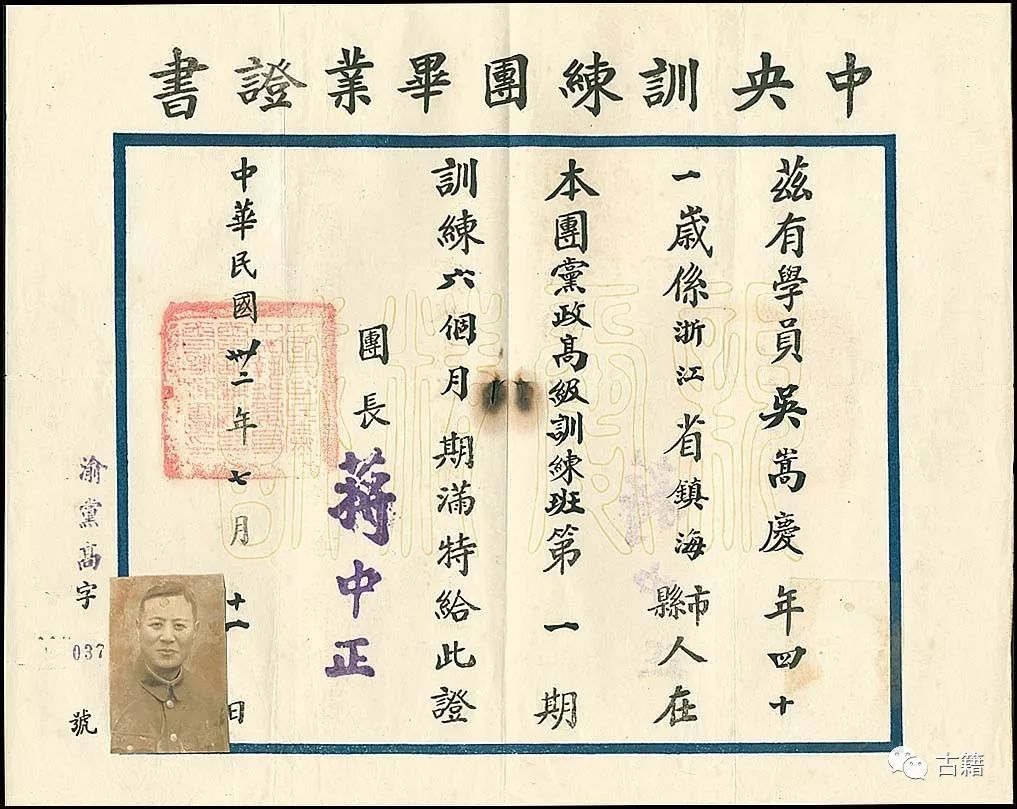 中央訓練團畢業證書
茲有學員吳嵩慶年四十
一歲係浙江省鎮海市縣人在
本團黨政高級訓練班第一期
訓練六個月期滿特給此證
團長蔣中正
中華民國卅二年七月十一日
渝黨高字037號
古籍